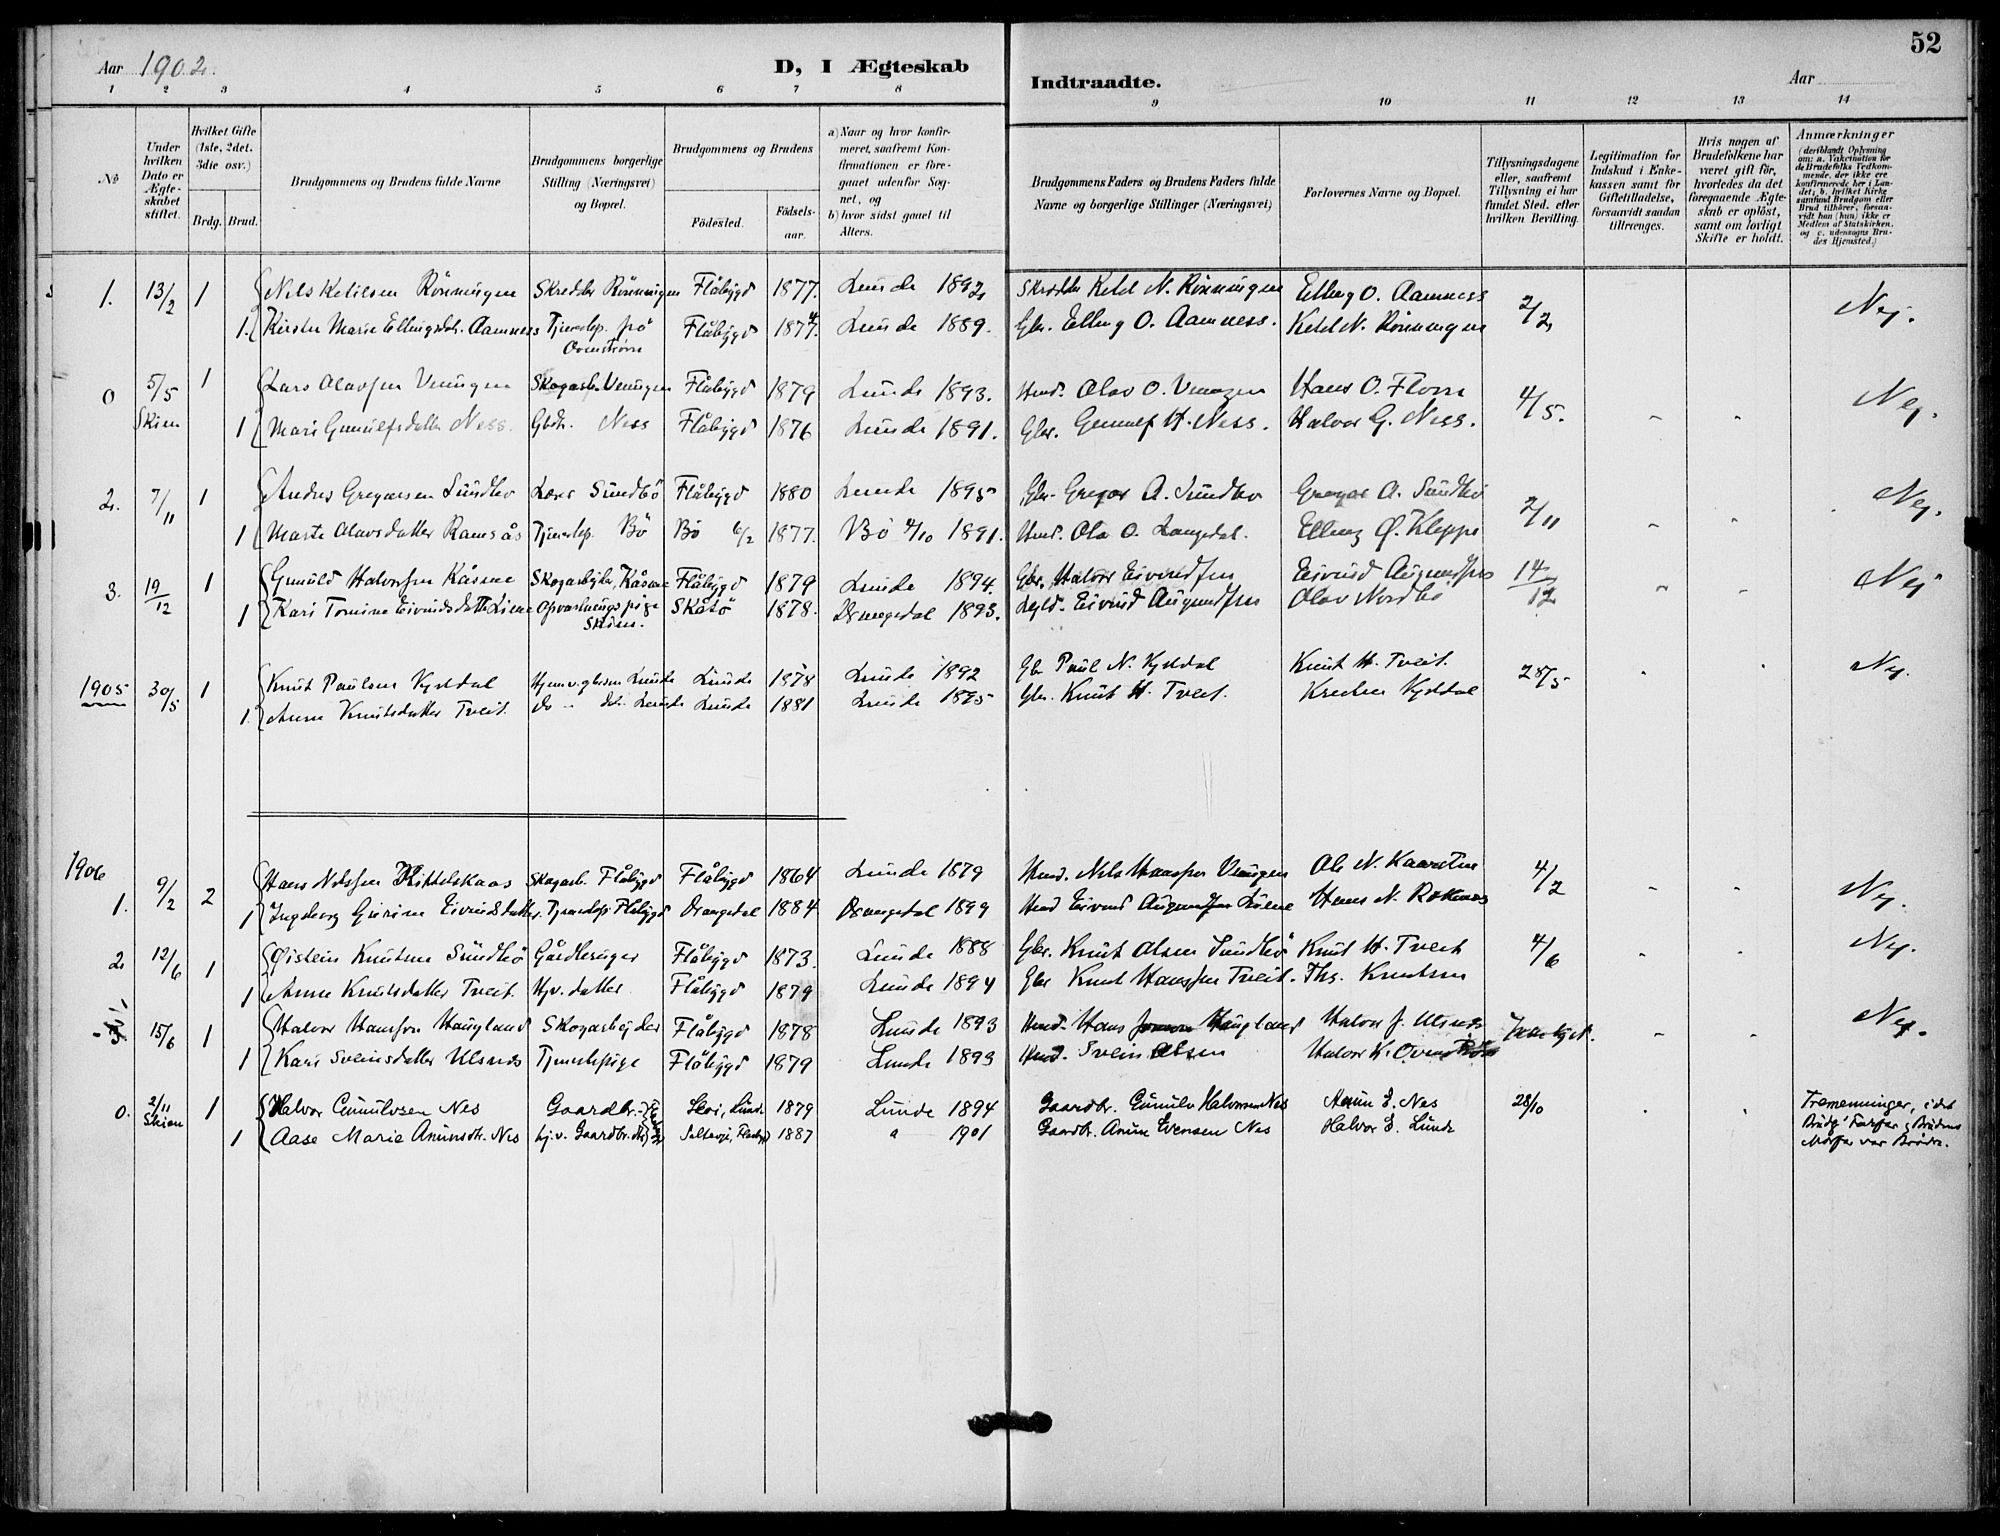 52
Aar 1902.
D, I Ægteskab
Indtraadte.
Aar
1 2 3 4 5 6 7 8 9 10 11 12 13 14
№
Under hvilken Dato er Ægteskabet stiftet.
Hvilket Gifte (1ste, 2det. 3die osv.)
Brdg. Brud.
Brudgommens og Brudens fulde Navne
Brudgommens borgerlige Stilling (Næringsvei) og Bopæl.
Brudgommens og Brudens
Födested.
Födsels-aar.
a) Naar og hvor konfirmeret, saafremt Konfirmationen er foregaaet udenfor Sognet, og
b) hvor sidst gaaet til Alters.
Brudgommens Faders og Brudens Faders fulde Navne og borgerlige Stillinger (Næringsvei)
Forlovernes Navne og Bopæl.
Tillysningsdagene eller, saafremt Tillysning ei har fundet Sted. efter hvilken Bevilling.
Legitimation for Indskud i Enkekassen samt for Giftetilladelse, forsaavidt saadan tiltrænges.
Hvis nogen af Brudefolkene har været gift för, hvorledes da det foregaaende Ægteskab er oplöst, samt om lovligt Skifte er holdt.
Anmærkninger
(deriblandt Oplysning om: a. Vakcination for de Brudefolks Vedkommende, der ikke ere konfirmerede her i Landet; b. hvilket Kirkesamfund Brudgom eller Brud tilhörer, forsaavidt han (hun) ikke er Medlem af Statskirken, og c. udensogns Brudes Hjemsted.)
1. 13/2 1 Nils Ketilsen Rönningen Skredder Rönningen Flåbygd 1877. Lunde 1892 Skredder Ketil N. Rönningen Elling O. Aamness 2/2 Nej.
1. Kirsten Marie Ellingsdtr. Aamness Tjenestep. på Flåbygd 1874. Lunde 1889. Gbr. Elling O. Aamness. Ketil N. Rönningen
0 5/5 Skien 1 Lars Olavsen Venigen Skogarb. Venigen Flåbygd 1879 Lunde 1893. Hmd. Olav O. Hans O. 4/5. Nej.
1 Mari Gunulfsdatter Ness. Gbdtr. Ness Flåbygd 1876 Lunde 1891. Gbr. Gunulf H. Ness. Halvor G. Ness.
2. 7/11 1 Andres Gregarsen Sundbo Lærer Sundbö Flåbygd 1880 Lunde 1895 Gbr. Gregar A. Sundbo Gregar A. Sundbö 2/11 Nej.
1 Marte Olavsdatter Ramsås Tjenestep. Bö Bö 6/2 1877. Bö 4/10 1891. Hmd. Olav O. Langedal. Elling Ø. Kleppe
3. 19/12 1 Gunuld Halvorsen Kåsene Skogarbejder, Kåsene Flåbygd 1879 Lunde 1894. Gbr. Halvor Eivindsen Eivind Augundsen 14/12 Nej
1 Kari Tomine Eivindsdatter Liene Opvartningspige Skien. Skåtö 1878. Drangedal 1893. Eivind Augundsen Olav Nordbö
1905 30/5 1 Knut Paulsen Kjeldal Lunde Lunde 1878 Lunde 1892 Gbr Paul N. Kjeldal Knut H. Tveit. 28/5 Nej.
1. Anne Knutsdatter Tveit. do - dtr. Lunde Lunde 1881 Lunde 1895 Gbr. Knut H. Tveit. Kjeldal
1906
1. 9/2 2 Hans Nilssen Kittelskaas Skogarb. Flåbygd Flåbygd 1864 Lunde 1879 Hmd. Nils Hanssen Venigen Ole N. 4/2 Nej.
1 Ingeborg Gurine Eivindsdatter. Tjenestepi. Flåbygd Drangedal 1884 Drangedal 1899 Hmd Eivind Augundsen Liene Hans N.
2. 12/6 1 Øistein Knutsen Sundbö Gårdbruger Flåbygd 1873. Lunde 1888 Gbr. Knut Olsen Sundbö Knut H. Tveit 4/6 Nej.
1 Anne Knutsdatter Tveit. Hjv. datter. Flåbygd 1879 Lunde 1894 Gbr Knut Hanssen Tveit. Ths. Knutsen
3. 15/6 1 Halvor Hansson Haugland Skogarbejder Flåbygd 1878 Lunde 1893 Hmd. Hans Haugland Halvor J. Ulsnes Nej.
1 Kari Sveinsdatter Ulsnes Tjenestepige Flåbygd 1879 Lunde 1893 Hmd. Svein Olsen Halvor K.
0. 2/11 Skien 1 Halvor Gunulvsen Nes Gaardbr. 1879 Lunde 1894 Gaardbr. Gunulv Halvorsen Nes Anun E. Nes 28/10 Tremenninger, idet Brudg' Farfar og Brudens Morfar var Brødre.
1 Aase Marie Anunsdtr. Nes hj.v. Gaardbr. dtr 1887 " 1901 Gaardbr. Anun Evensen Nes Halvor E. Lunde